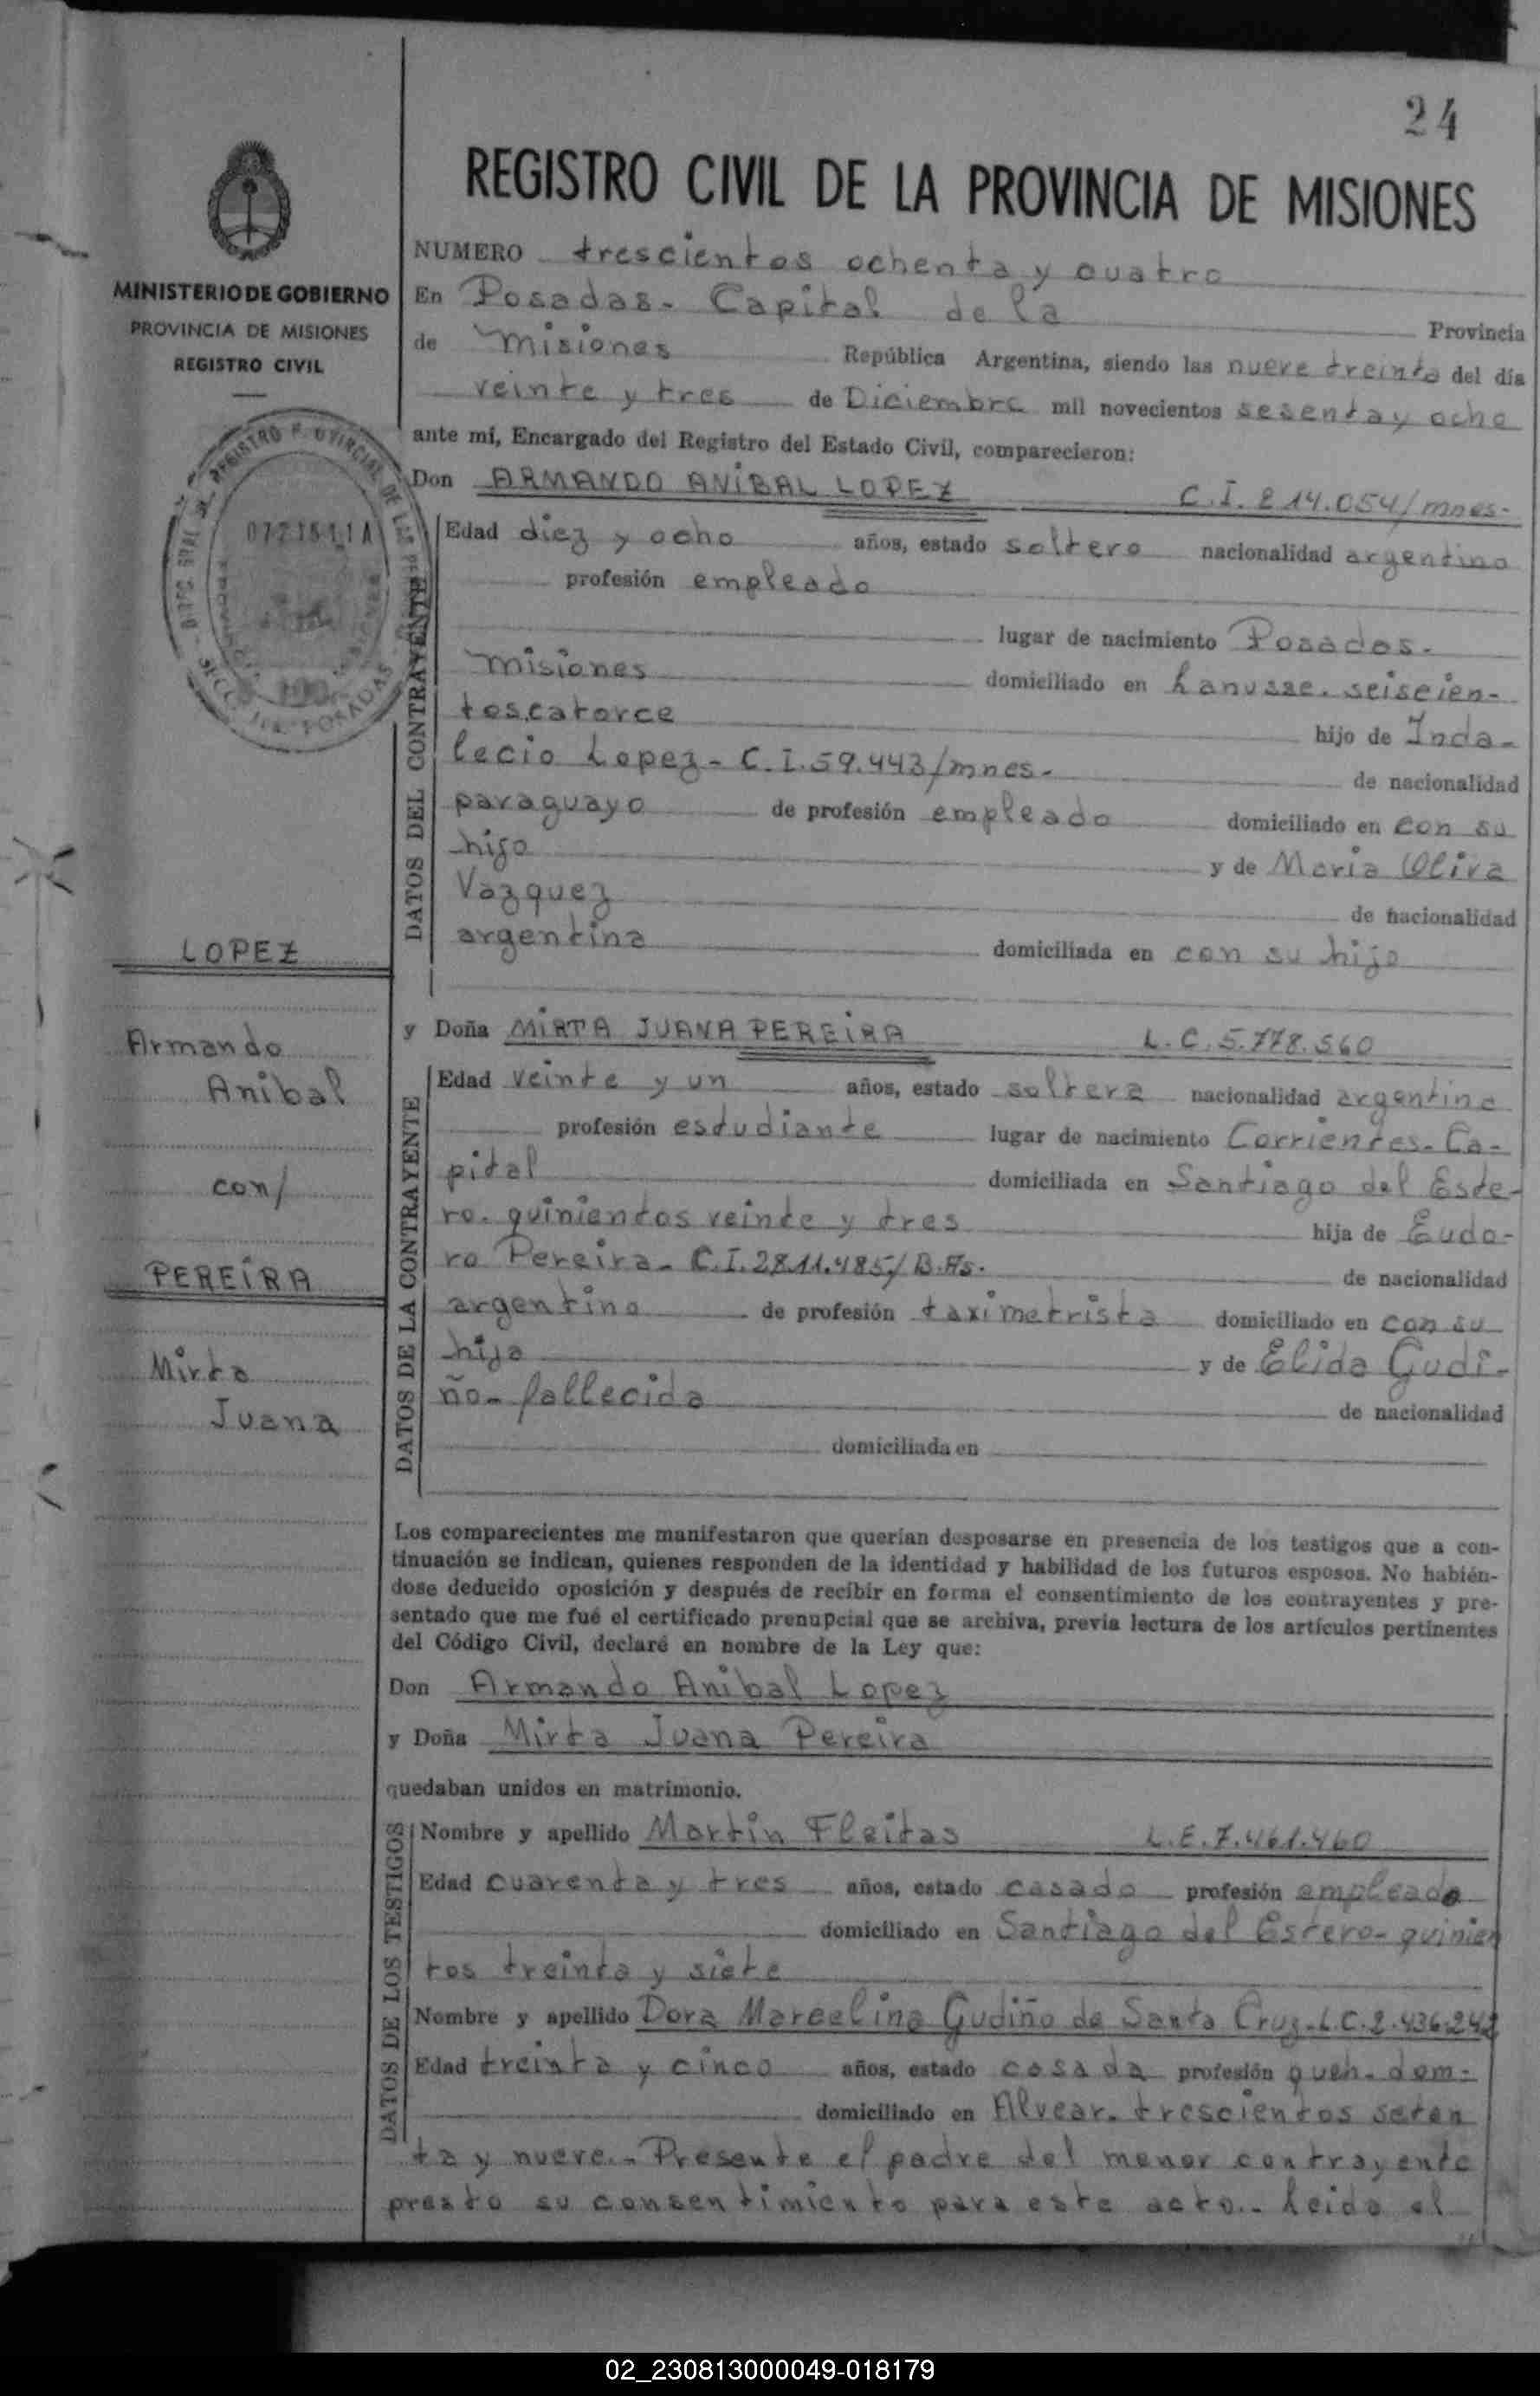 24
REGISTRO CIVIL DE LA PROVINCIA DE MISIONES
MINISTERIO DE GOBIERNO
PROVINCIA DE MISIONES
REGISTRO CIVIL
NUMERO trescientos ochenta y cuatro
En Posadas- Capital de la Provincia
de Misiones República Argentina, siendo las nueve treinta del día
veinte y tres de Diciembre mil novecientos sesenta y ocho
ante mí, Encargado del Registro del Estado Civil, comparecieron:
Don ARMANDO ANÍBAL LOPEZ C.I. 214.054/mnes-
DATOS DEL CONTRAYENTE
Edad diez y ocho años, estado soltero nacionalidad argentino
profesión empleado
lugar de nacimiento Posadas-
Misiones domiciliado en Lanusse. seiscien-
tos catorce hijo de Inda-
lecio Lopez- C.I.59.443/mnes- de nacionalidad
paraguayo de profesión empleado domiciliado en con su
hijo y de Maria Oliva
Vazquez de nacionalidad
argentina domiciliada en con su hijo
LOPEZ
Armando
Anibal
con/
PEREÍRA
Mirta
Juana
y Doña MIRTA JUANA PEREÍRA L.C.5.778.560
DATOS DE LA CONTRAYENTE
Edad veinte y un años, estado soltera nacionalidad argentina
profesión estudiante lugar de nacimiento Corrientes- Ca-
pital domiciliada en Santiago del Este-
ro. quinientos veinte y tres hija de Eudo-
ro Pereira- C.I.2811.485/B.As. de nacionalidad
argentino de profesión taximetrista domiciliado en con su
hija y de Elida Gudi-
ño- fallecida de nacionalidad
domiciliada en
Los comparecientes me manifestaron que querían desposarse en presencia de los testigos que a con-
tinuación se indican, quienes responden de la identidad y habilidad de los futuros esposos. No habién-
dose deducido oposición y después de recibir en forma el consentimiento de los contrayentes y pre-
sentado que me fué el certificado prenupcial que se archiva, previa lectura de los artículos pertinentes
del Código Civil, declaré en nombre de la Ley que:
Don Armando Anibal Lopez
y Doña Mirta Juana Pereira
quedaban unidos en matrimonio.
DATOS DE LOS TESTIGOS
Nombre y apellido Martín Fleitas L.E.7.461.460
Edad cuarenta y tres años, estado casado profesión empleado
domiciliado en Santiago del Estero- quinien
tos treinta y siete
Nombre y apellido Dora Marcelina Gudiño de Santa Cruz-L.C.2.436.242
Edad treinta y cinco años, estado casada profesión queh. dom-
domiciliado en Alvear. trescientos seten
ta y nueve.- Presente el padre del menor contrayente
presto su consentimiento para este acto.- Leida el
02_230813000049-018179